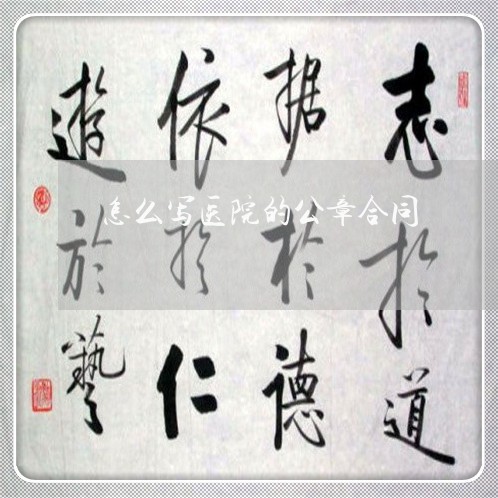 志於道
据於德
依於仁
遊於藝
怎么写医院的公章合同